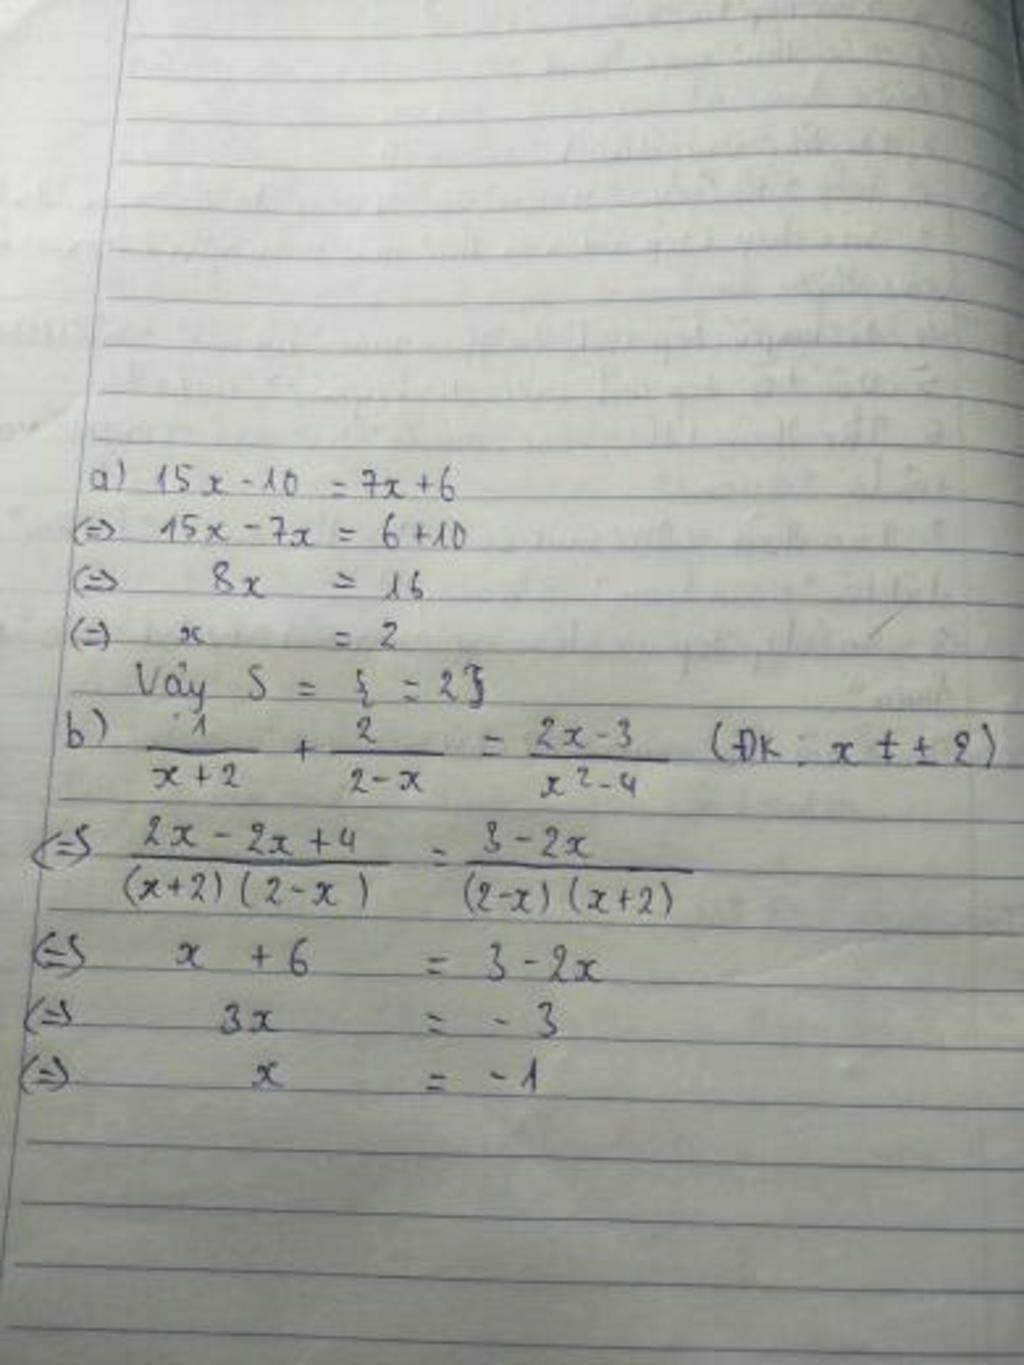 a) 15x - 10 = 7x + 6
(=) 15x - 7x = 6 + 10
(=) 8x = 16
(=) x = 2
Vây S = { = 2}
b) 1/(x+2) + 2/(2-x) = (2x-3)/(x²-4) (ĐK: x ≠ ± 2)
(=) (2x - 2x + 4)/((x+2)(2-x)) = (3-2x)/((2-x)(x+2))
(=) x + 6 = 3 - 2x
(=) 3x = - 3
(=) x = - 1